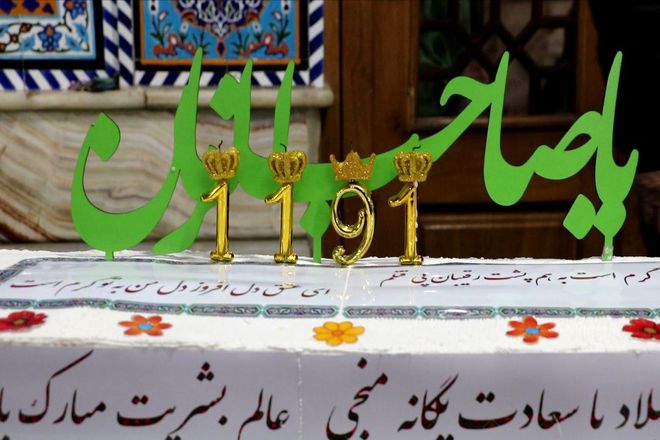 یا صاحب الزمان
1191
گرم است به هم پشت رقیبان پی قتلم ای عشق دل افروز دل من به تو گرم است
یلاد با سعادت یگانه منجی عالم بشریت مبارک با